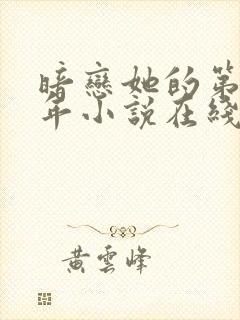 暗戀她的第
年小說在綫
黃雲峰